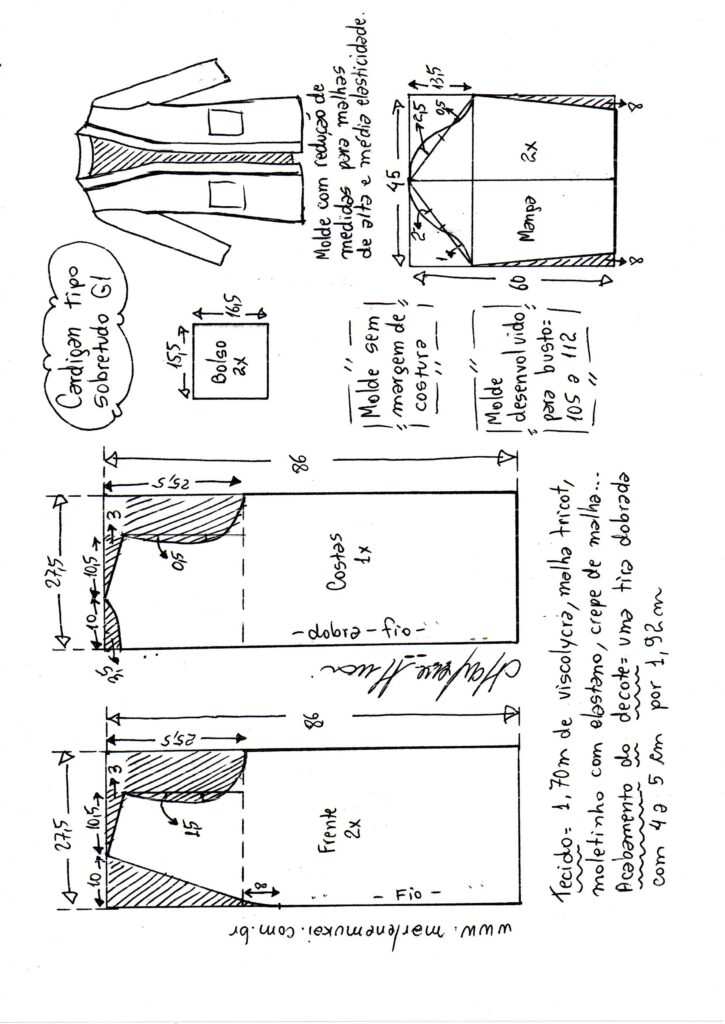 Cardigan tipo
sobretudo G1
Molde com redução de
medidas para malhas
de alta e média elasticidade.
15,5
16,5
Bolso
2x
Molde sem
margem de
costura
Molde
desenvolvido
para busto=
105 a 112
45
13,5
2,5
0,5
2
1
Manga
2x
60
8
8
27,5
10
10,5
3
25,5
1,5
98
8
Frente
2x
Fio
27,5
10
10,5
3
25,5
0,5
98
Costas
1x
dobra - fio
Marlene Mukai
www.marlenemukai.com.br
Tecido= 1,70m de viscolycra, malha tricot,
moletinho com elastano, crepe de malha...
Acabamento do decote= uma tira dobrada
com 4 a 5 cm por 1,92m